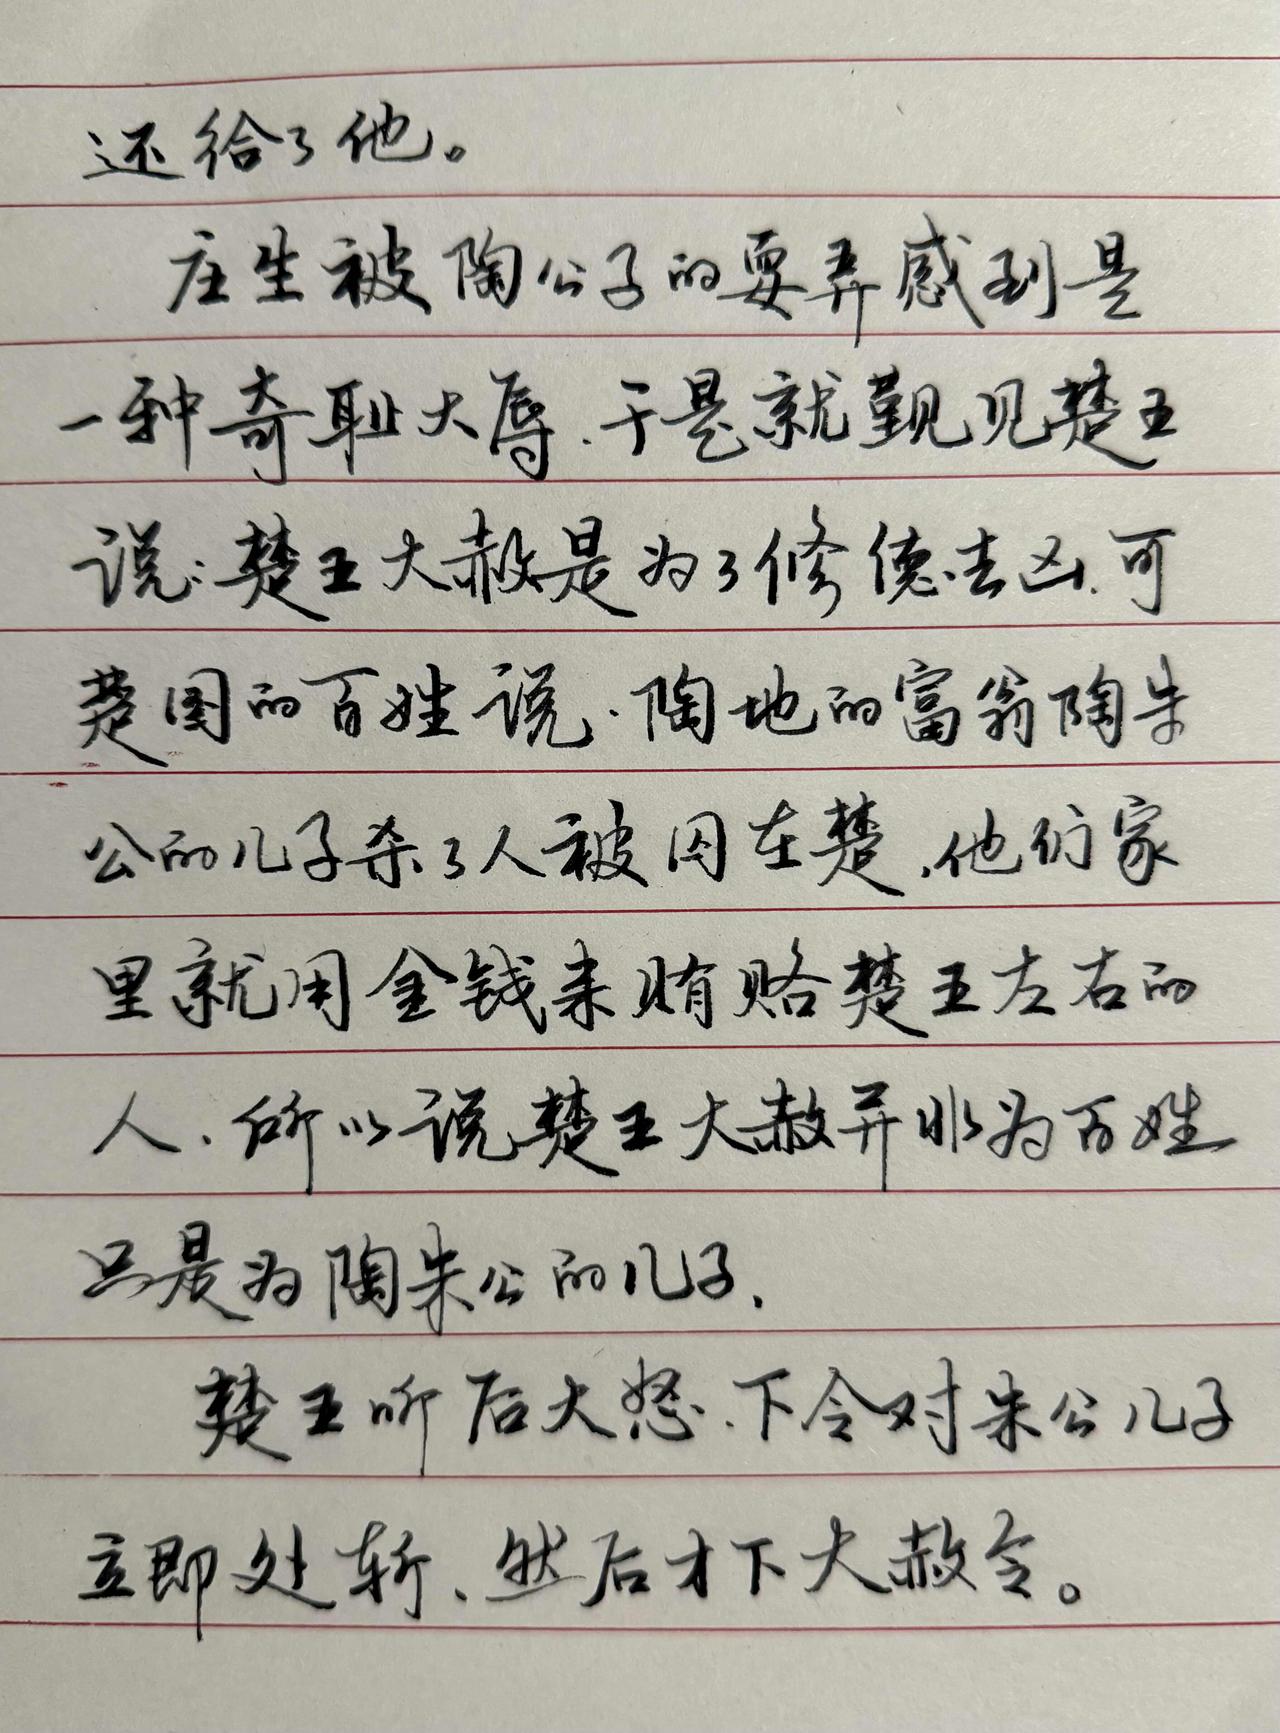 还给了他。
庄生被陶公子的耍弄感到是
一种奇耻大辱，于是就觐见楚王
说：楚王大赦是为了修德去凶，可
楚国的百姓说，陶地的富翁陶朱
公的儿子杀了人被囚在楚，他们家
里就用金钱来贿赂楚王左右的
人，所以说楚王大赦并非为百姓
只是为陶朱公的儿子，
楚王听后大怒，下令对朱公儿子
立即处斩、然后才下大赦令。